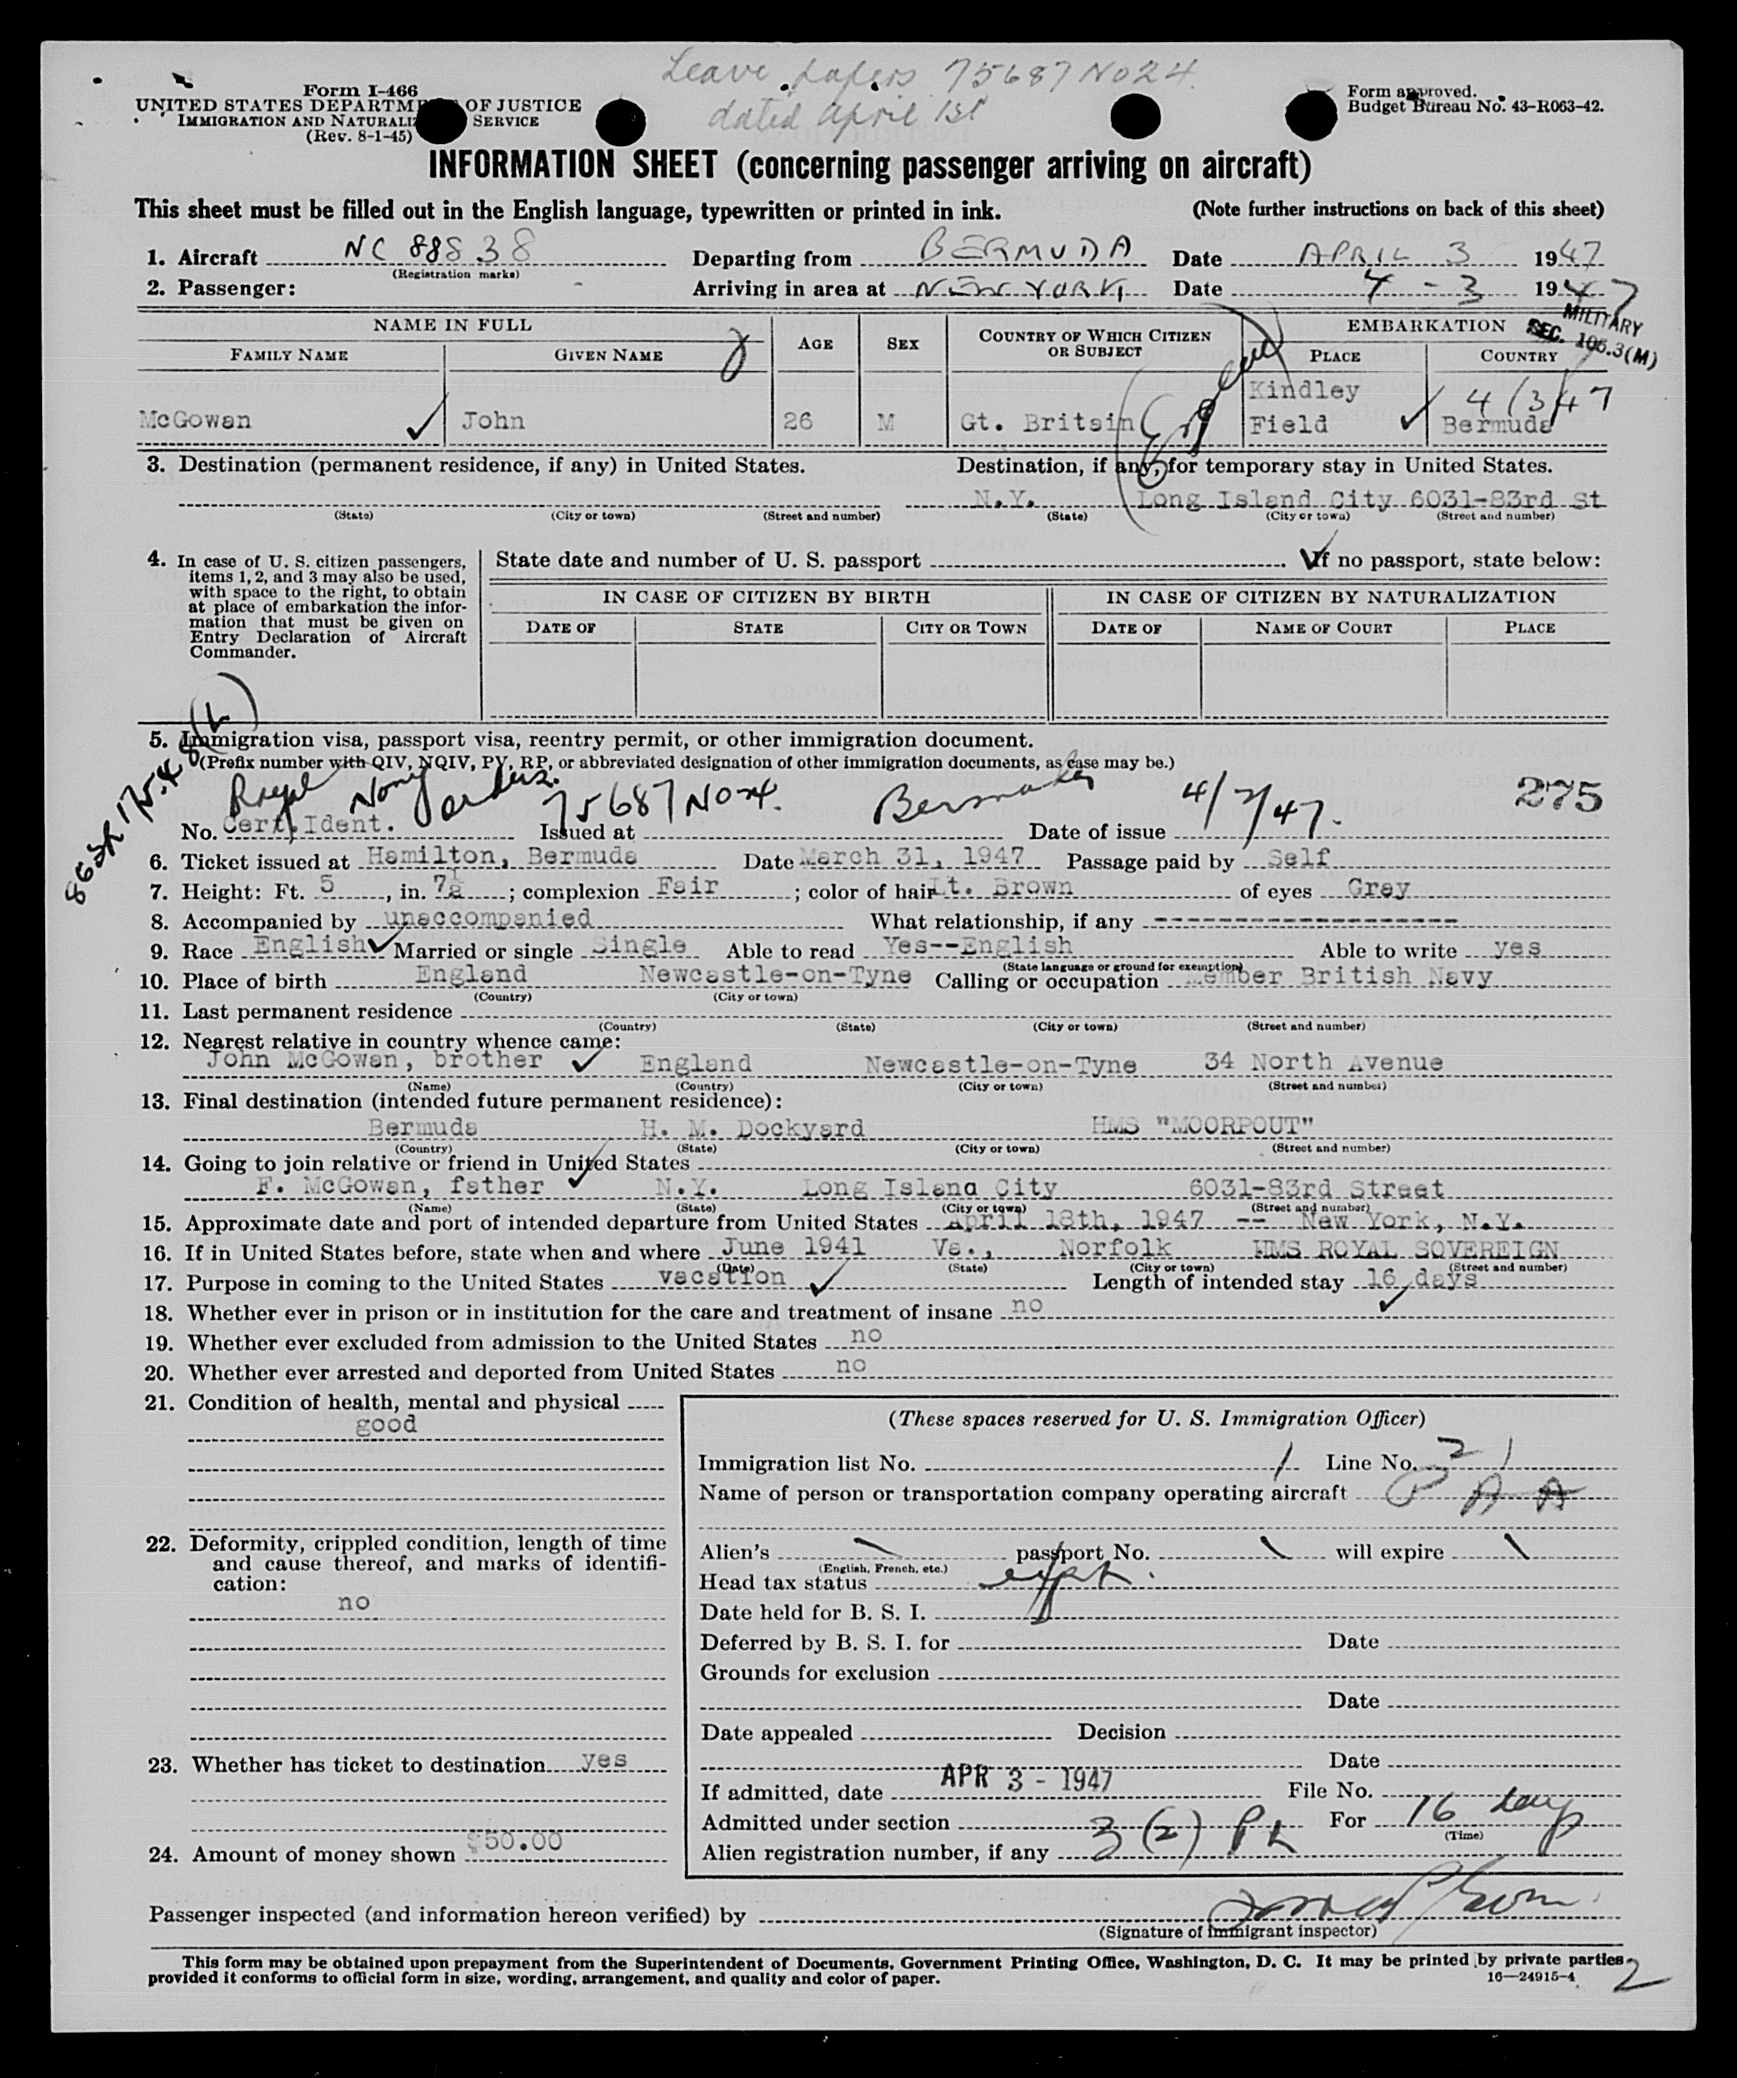 Leave papers 75687 No 24
dated April 1st
Form I-466
UNITED STATES DEPARTMENT OF JUSTICE
IMMIGRATION AND NATURALIZATION SERVICE
(Rev. 8-1-45)
Form approved.
Budget Bureau No. 43-R063-42.
INFORMATION SHEET (concerning passenger arriving on aircraft)
This sheet must be filled out in the English language, typewritten or printed in ink. (Note further instructions on back of this sheet)
1. Aircraft NC 88838 Departing from BERMUDA Date APRIL 3 1947
(Registration marks)
2. Passenger: Arriving in area at NEW YORK Date 4-3 1947
MILITARY
SEC. 106.3(M)
NAME IN FULL AGE SEX COUNTRY OF WHICH CITIZEN OR SUBJECT EMBARKATION
FAMILY NAME GIVEN NAME PLACE COUNTRY
Kindley 4/3/47
McGowan John 26 M Gt. Britain Field Bermuda
3. Destination (permanent residence, if any) in United States. Destination, if any, for temporary stay in United States.
N.Y. Long Island City 6031-83rd St
(State) (City or town) (Street and number) (State) (City or town) (Street and number)
4. In case of U. S. citizen passengers, items 1, 2, and 3 may also be used, with space to the right, to obtain at place of embarkation the information that must be given on Entry Declaration of Aircraft Commander.
State date and number of U. S. passport . If no passport, state below:
IN CASE OF CITIZEN BY BIRTH IN CASE OF CITIZEN BY NATURALIZATION
DATE OF STATE CITY OR TOWN DATE OF NAME OF COURT PLACE
5. Immigration visa, passport visa, reentry permit, or other immigration document.
(Prefix number with QIV, NQIV, PV, RP, or abbreviated designation of other immigration documents, as case may be.)
Royal Navy orders. 75687 No 24. Bermuda 4/2/47. 275
No. Cert. Ident. Issued at Date of issue
6. Ticket issued at Hamilton, Bermuda Date March 31, 1947 Passage paid by Self
7. Height: Ft. 5, in. 7½; complexion Fair; color of hair Lt. Brown of eyes Gray
8. Accompanied by unaccompanied What relationship, if any --------------------
9. Race English Married or single Single Able to read Yes--English Able to write yes
(State language or ground for exemption)
10. Place of birth England Newcastle-on-Tyne Calling or occupation Member British Navy
(Country) (City or town)
11. Last permanent residence
(Country) (State) (City or town) (Street and number)
12. Nearest relative in country whence came:
John McGowan, brother England Newcastle-on-Tyne 34 North Avenue
(Name) (Country) (City or town) (Street and number)
13. Final destination (intended future permanent residence):
Bermuda H. M. Dockyard HMS "MOORPOUT"
(Country) (State) (City or town) (Street and number)
14. Going to join relative or friend in United States
F. McGowan, father N.Y. Long Island City 6031-83rd Street
(Name) (State) (City or town) (Street and number)
15. Approximate date and port of intended departure from United States April 18th, 1947 -- New York, N.Y.
16. If in United States before, state when and where June 1941 Va., Norfolk HMS ROYAL SOVEREIGN
(Date) (State) (City or town) (Street and number)
17. Purpose in coming to the United States vacation Length of intended stay 16 days
18. Whether ever in prison or in institution for the care and treatment of insane no
19. Whether ever excluded from admission to the United States no
20. Whether ever arrested and deported from United States no
21. Condition of health, mental and physical
good
22. Deformity, crippled condition, length of time and cause thereof, and marks of identification:
no
23. Whether has ticket to destination yes
24. Amount of money shown $50.00
(These spaces reserved for U. S. Immigration Officer)
Immigration list No. 1 Line No. 21
Name of person or transportation company operating aircraft P A A
Alien's passport No. will expire
(English, French, etc.)
Head tax status
Date held for B. S. I.
Deferred by B. S. I. for Date
Grounds for exclusion
Date
Date appealed Decision
Date
If admitted, date APR 3 - 1947 File No.
Admitted under section 3(2) For 16 days
(Time)
Alien registration number, if any
Passenger inspected (and information hereon verified) by
(Signature of immigrant inspector)
This form may be obtained upon prepayment from the Superintendent of Documents, Government Printing Office, Washington, D. C. It may be printed by private parties
provided it conforms to official form in size, wording, arrangement, and quality and color of paper. 16—24915-4
2